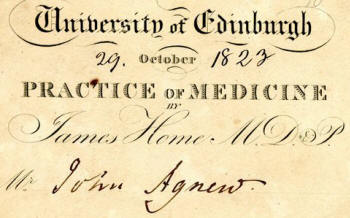 University of Edinburgh
29. October 1823
PRACTICE OF MEDICINE
BY
James Home M.D.&P.
Mr. John Agnew.